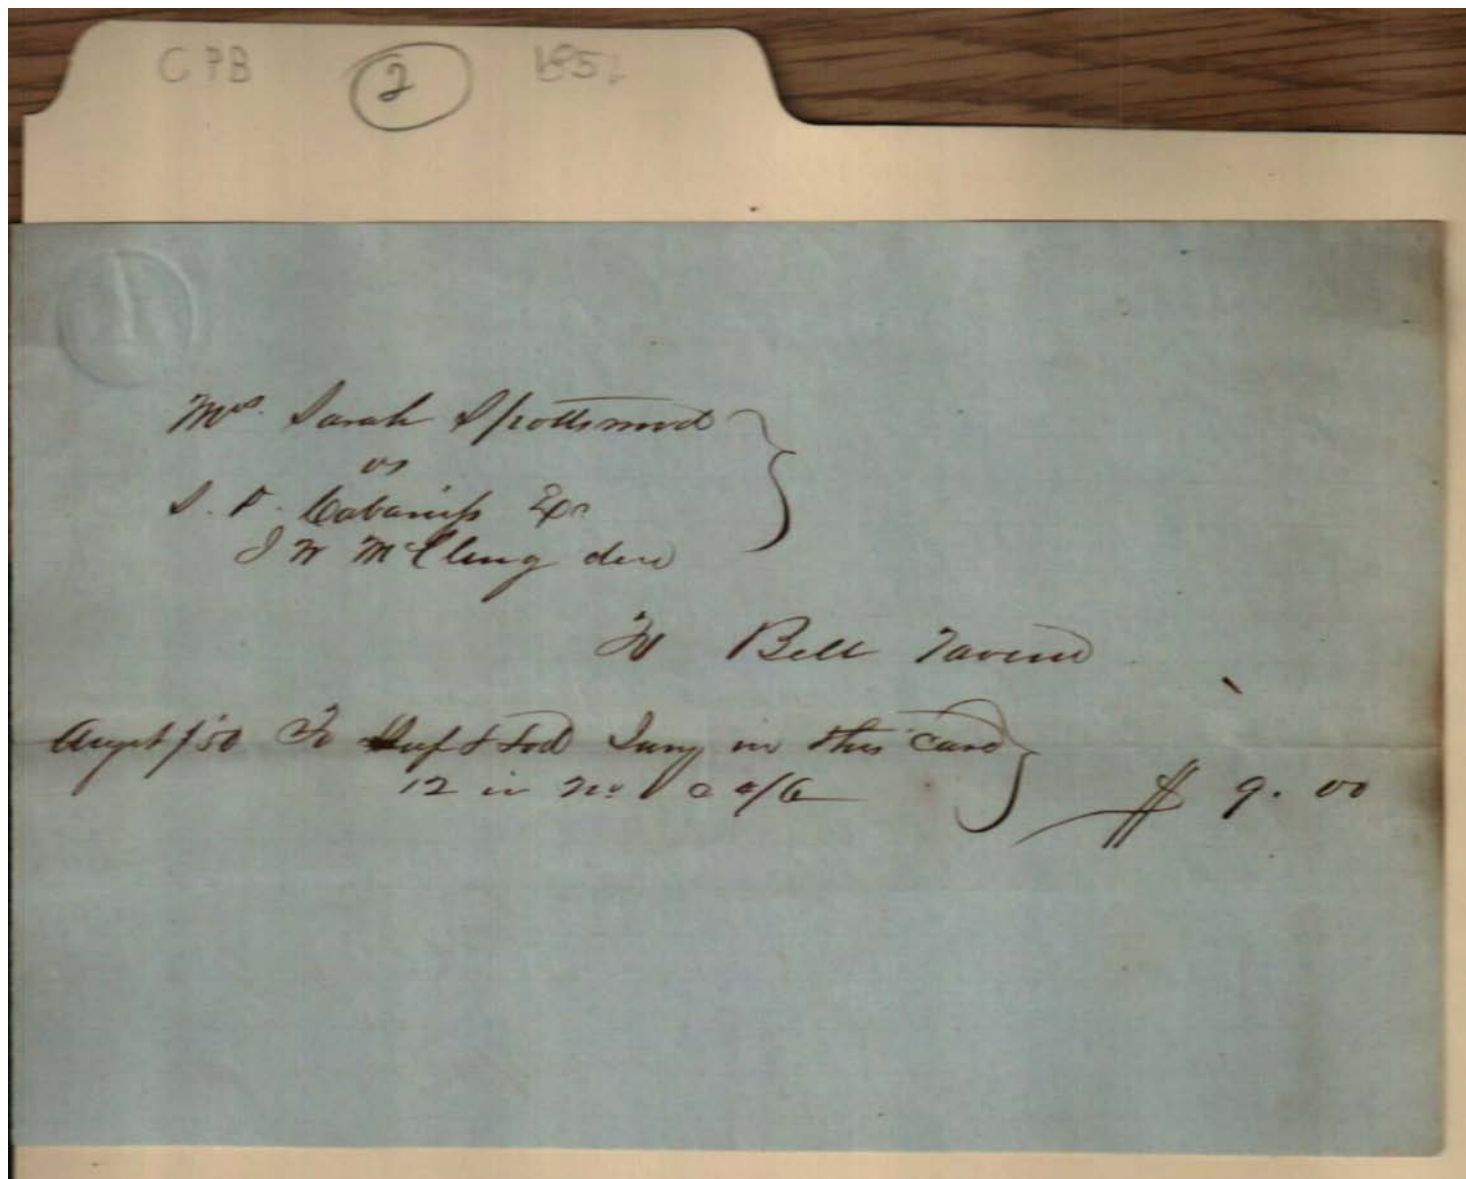 CPB 2 185
Mrs. Sarah Spottswood
vs
S. D. Cabaniss Exr
J W McClung decd
To Bell Tavern
August /50 To Sup & Lod Jury in this case
12 in no @ 4/6 $ 9.00